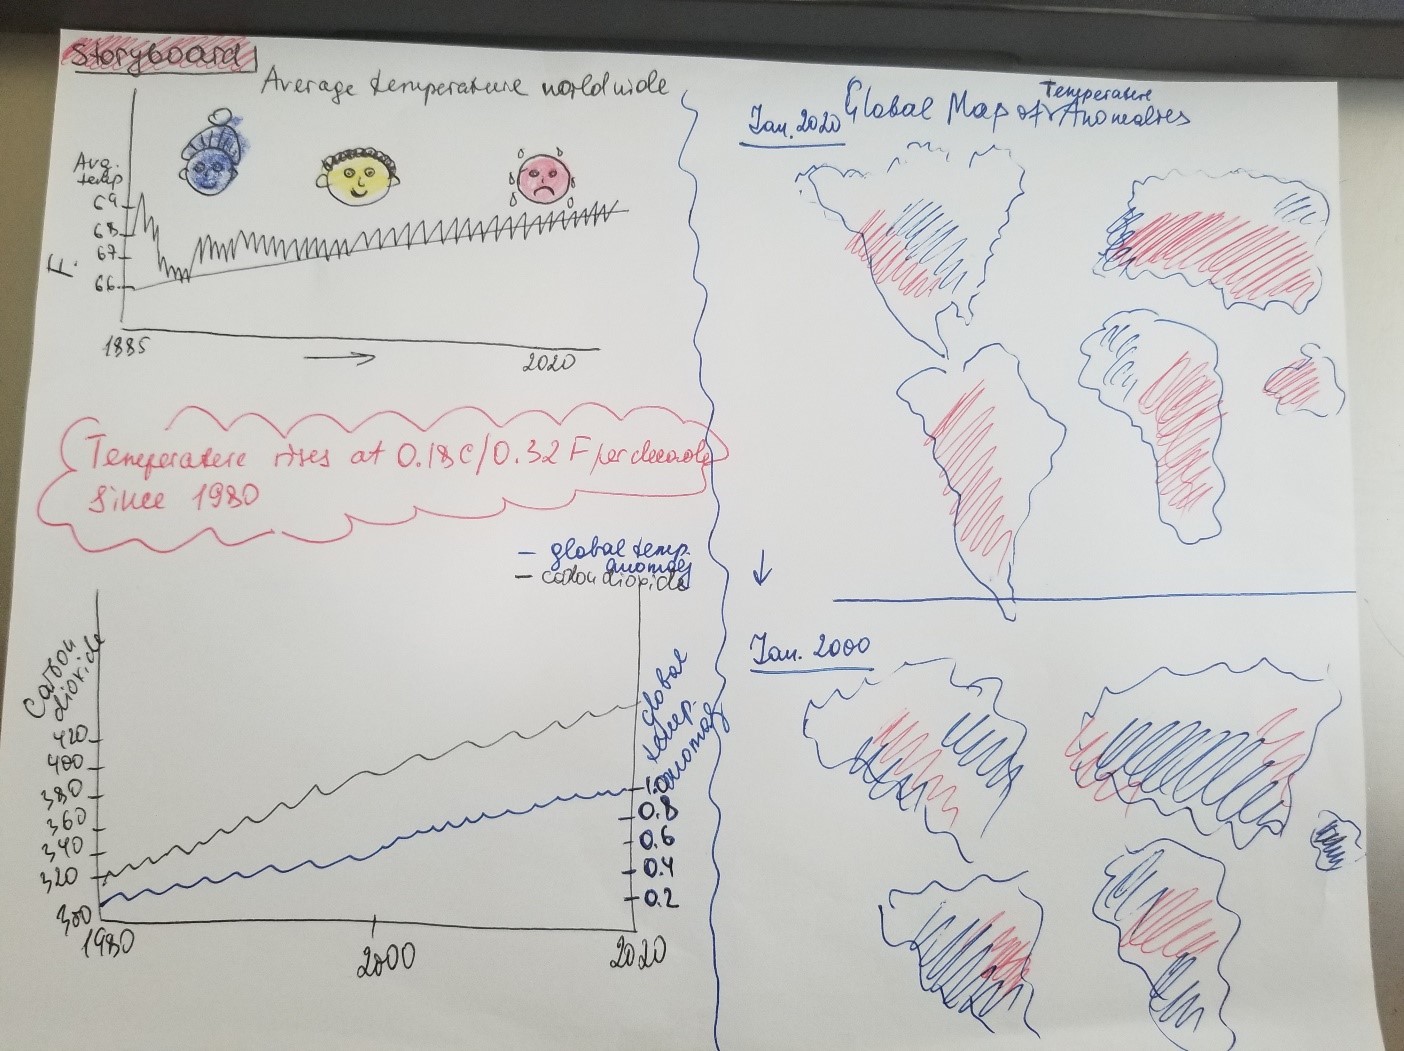 Storyboard
Average temperature worldwide
Avg.
temp
69
68
67
66
F.
1885
2020
Temperature rises at 0.18C/0.32 F per decade
since 1980
global temp.
anomaly
carbon dioxide
Carbon
dioxide
420
400
380
360
340
320
300
1980
2000
2020
global
temp.
anomaly
1.0
0.8
0.6
0.4
0.2
Global Map of Temperature Anomalies
Jan. 2020
Jan. 2000